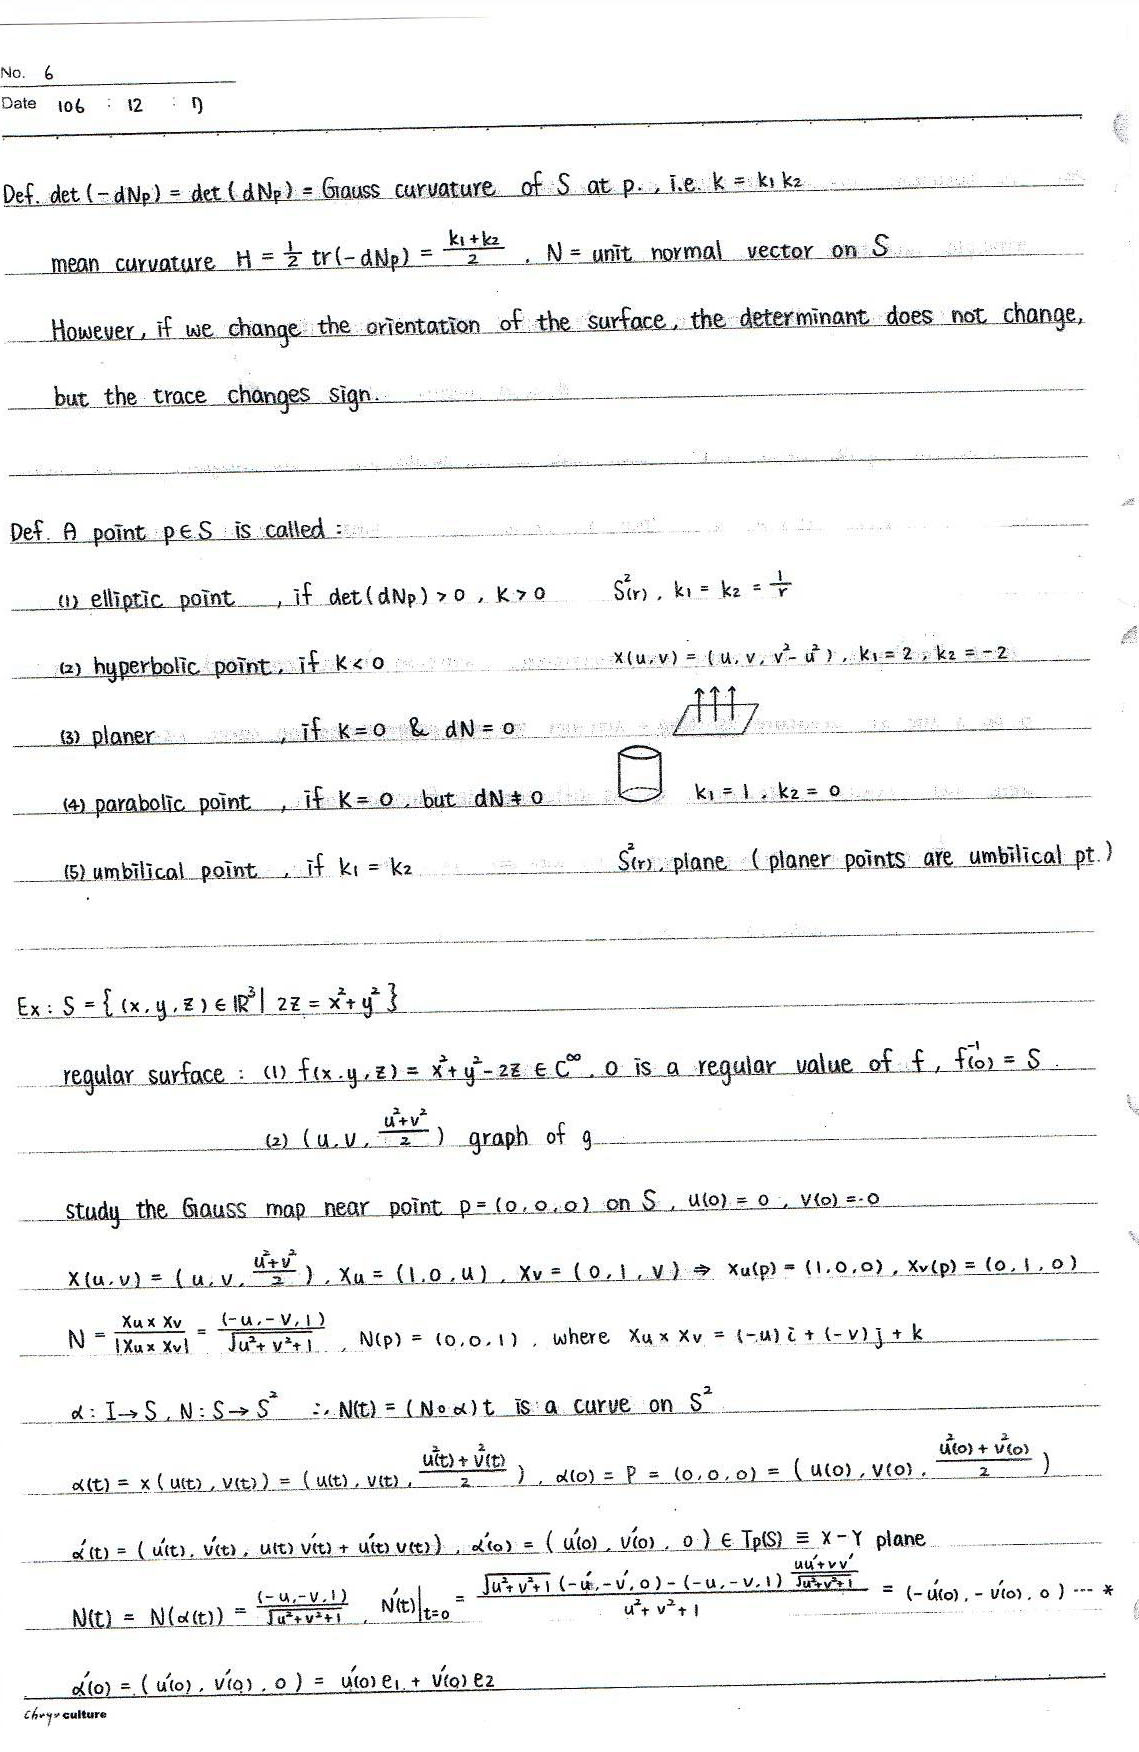 No. 6
Date 106 : 12 :
Def. det(-dNp) = det(dNp) = Gauss curvature of S at p., i.e. k = k₁k₂
mean curvature H = 1/2 tr(-dNp) = (k₁+k₂)/2 , N = unit normal vector on S
However, if we change the orientation of the surface, the determinant does not change,
but the trace changes sign.
Def. A point p∈S is called :
(1) elliptic point , if det(dNp) > 0 , K > 0 S²(r), k₁ = k₂ = 1/r
(2) hyperbolic point, if K < 0 x(u,v) = (u, v, v²-u²), k₁ = 2, k₂ = -2
(3) planer , if K = 0 & dN = 0
(4) parabolic point , if K = 0, but dN ≠ 0 k₁ = 1, k₂ = 0
(5) umbilical point , if k₁ = k₂ S²(r), plane (planer points are umbilical pt.)
Ex : S = {(x,y,z)∈ℝ³| 2z = x²+y²}
regular surface : (1) f(x,y,z) = x²+y²-2z ∈ C^∞, 0 is a regular value of f, f⁻¹(0) = S.
(2) (u, v, (u²+v²)/2) graph of g
study the Gauss map near point p = (0,0,0) on S, u(0) = 0, v(0) = 0
X(u,v) = (u, v, (u²+v²)/2), Xu = (1,0,u), Xv = (0,1,v) ⇒ Xu(p) = (1,0,0), Xv(p) = (0,1,0)
N = (Xu × Xv)/|Xu × Xv| = (-u,-v,1)/√(u²+v²+1), N(p) = (0,0,1), where Xu × Xv = (-u)i + (-v)j + k
α : I→S, N : S→S² ∴ N(t) = (N∘α)t is a curve on S²
α(t) = x(u(t), v(t)) = (u(t), v(t), (u²(t)+v²(t))/2), α(0) = P = (0,0,0) = (u(0), v(0), (u²(0)+v²(0))/2)
α'(t) = (u'(t), v'(t), u(t)v'(t) + u'(t)v(t)), α'(0) = (u'(0), v'(0), 0) ∈ Tp(S) ≡ X-Y plane
N(t) = N(α(t)) = (-u,-v,1)/√(u²+v²+1), N'(t)|t=0 = (√(u²+v²+1)(-u',-v',0) - (-u,-v,1)(uu'+vv')/√(u²+v²+1))/(u²+v²+1) = (-u'(0), -v'(0), 0) ... *
α'(0) = (u'(0), v'(0), 0) = u'(0)e₁ + v'(0)e₂
Chrys culture